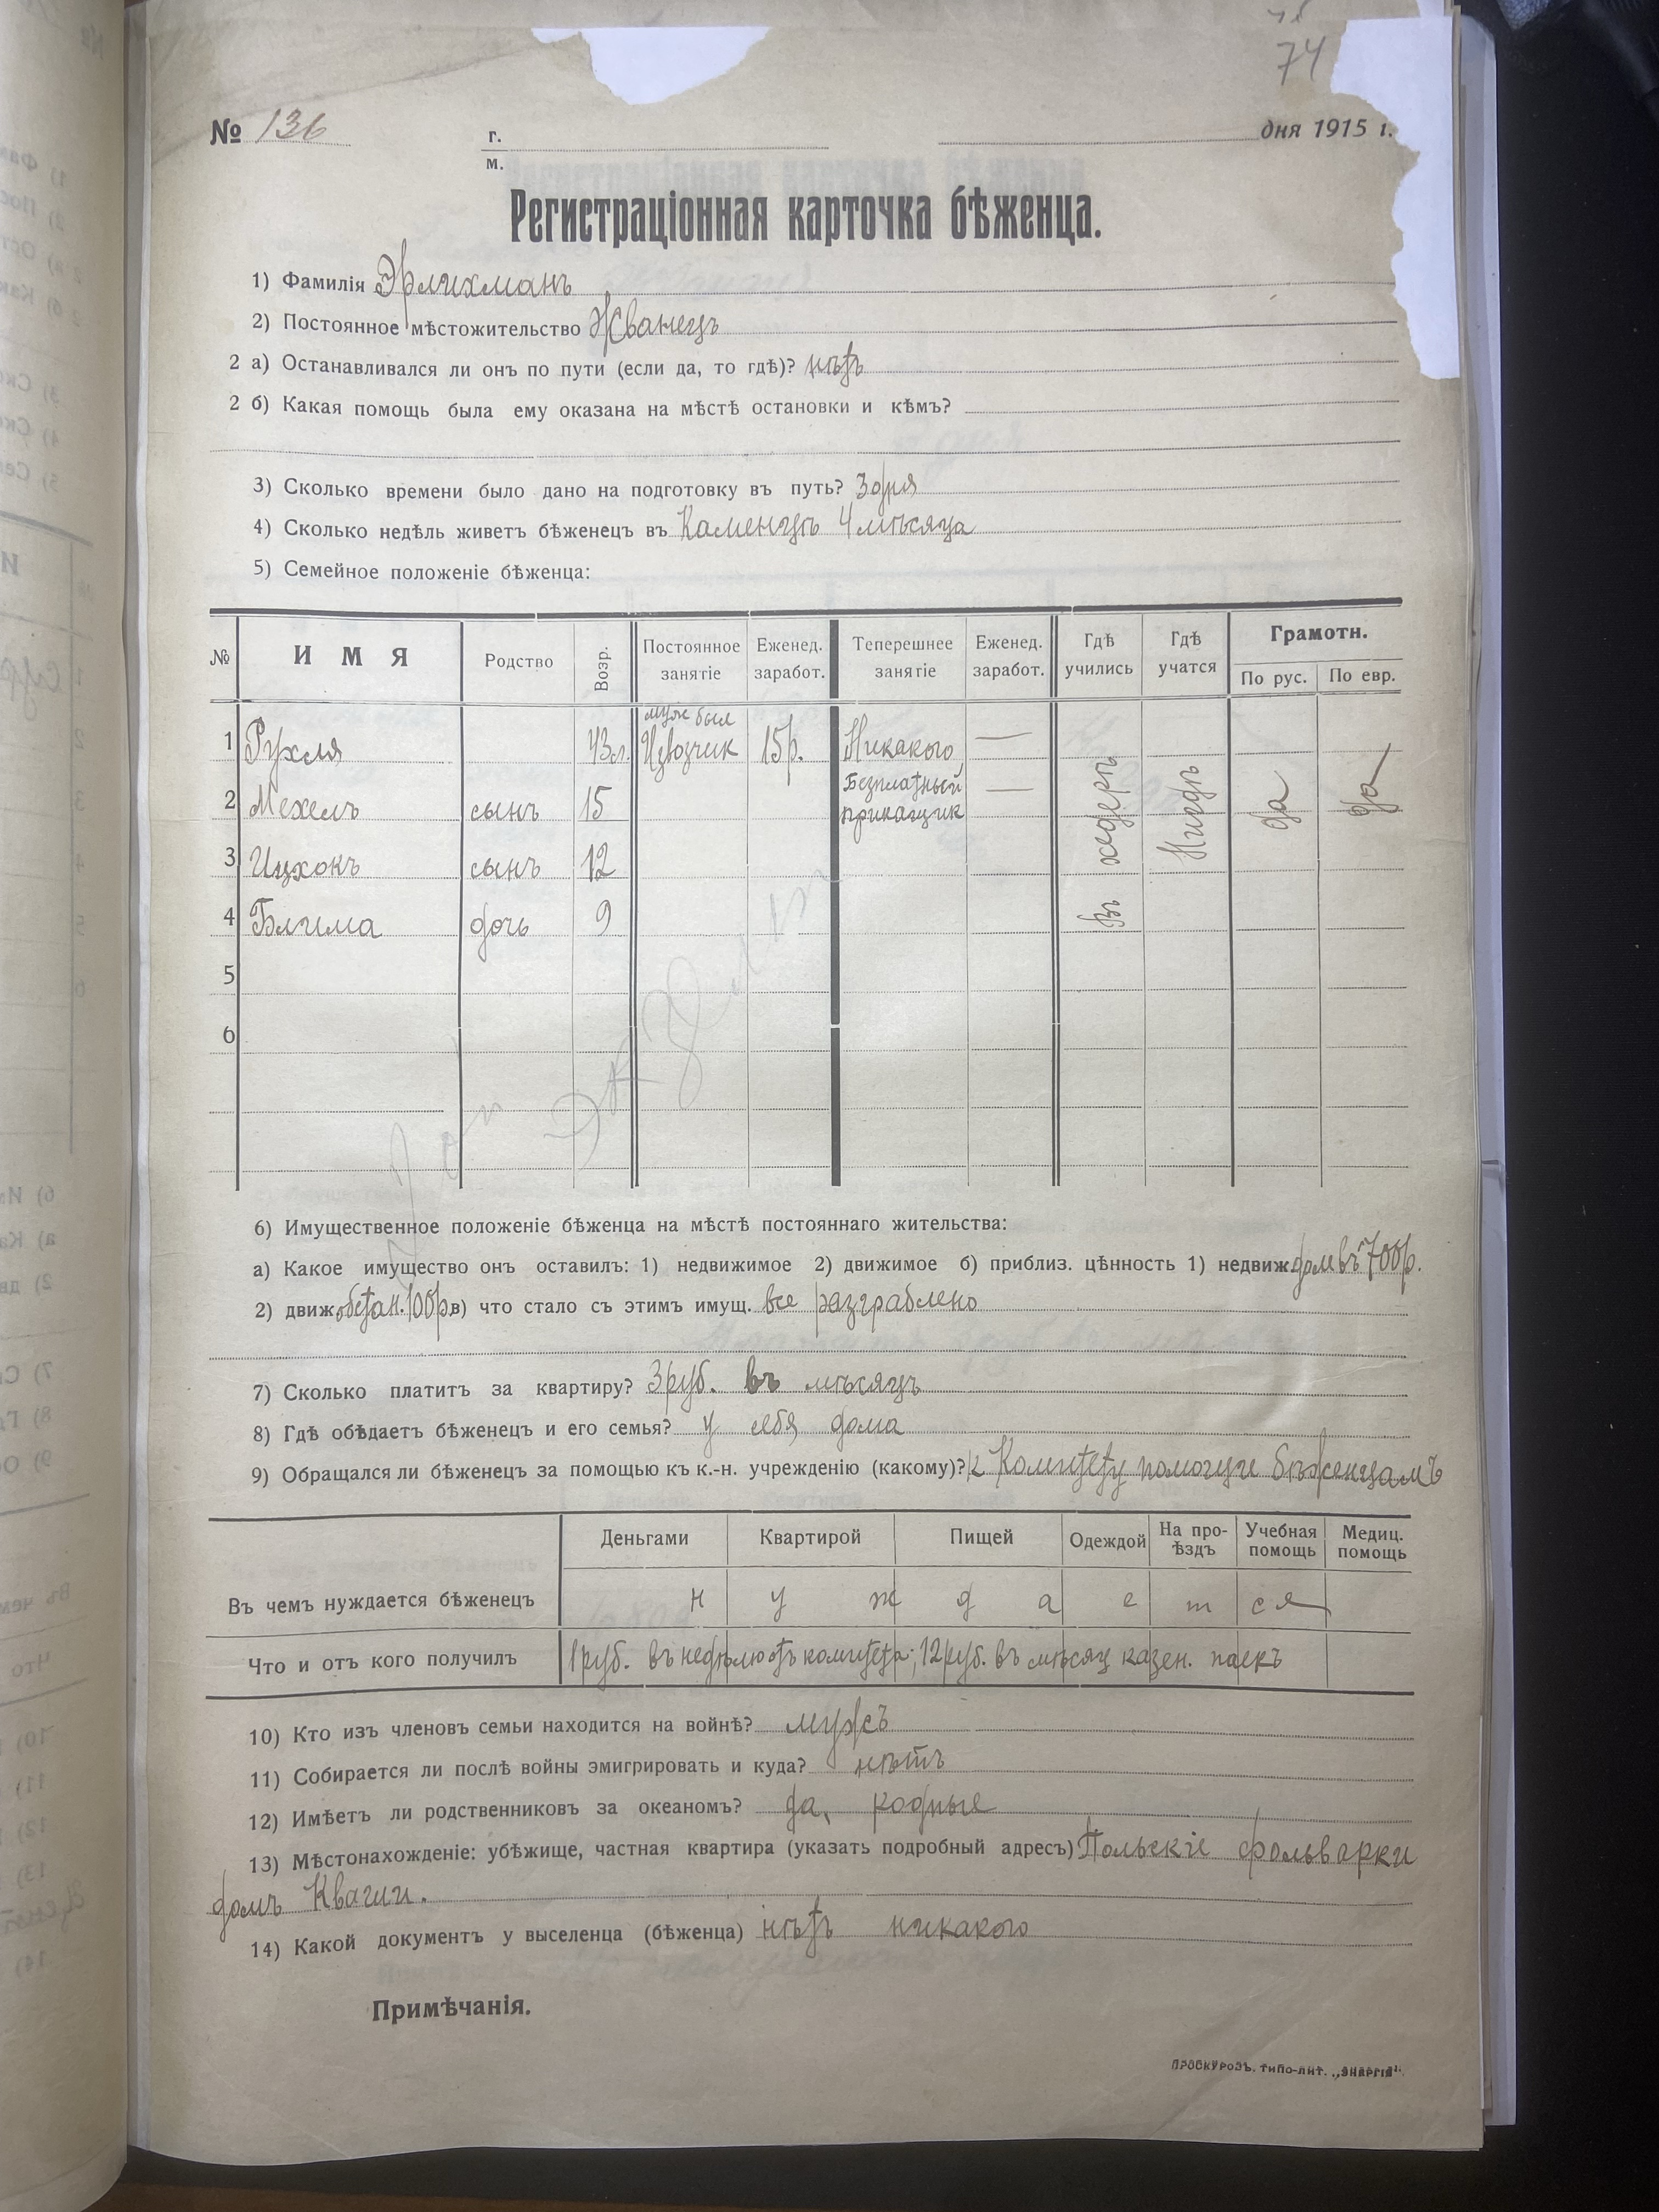 74
№ 136 г. дня 1915 г.
м.
Регистраціонная карточка бѣженца.
1) Фамилія Эрлихманъ
2) Постоянное мѣстожительство Жванецъ
2 а) Останавливался ли онъ по пути (если да, то гдѣ)? нѣтъ
2 б) Какая помощь была ему оказана на мѣстѣ остановки и кѣмъ?
3) Сколько времени было дано на подготовку въ путь? 3 дня
4) Сколько недѣль живетъ бѣженецъ въ Каменцѣ 4 мѣсяца
5) Семейное положеніе бѣженца:
№ ИМЯ Родство Возр. Постоянное занятіе Еженед. заработ. Теперешнее занятіе Еженед. заработ. Гдѣ учились Гдѣ учатся Грамотн. По рус. По евр.
1 Рухля 43 л. муж был Извозчик 15 р. Никакого —
2 Мехель сынъ 15 Безплатный приказчик —
3 Ицхокъ сынъ 12
4 Блима дочь 9
въ хедерѣ Нигдѣ да да
5
6
6) Имущественное положеніе бѣженца на мѣстѣ постояннаго жительства:
а) Какое имущество онъ оставилъ: 1) недвижимое 2) движимое б) приблиз. цѣнность 1) недвиж. дом въ 700 р.
2) движ. обстан. 100 р. в) что стало съ этимъ имущ. все разграблено
7) Сколько платитъ за квартиру? 3 руб. въ мѣсяцъ
8) Гдѣ обѣдаетъ бѣженецъ и его семья? у себя дома
9) Обращался ли бѣженец за помощью къ к.-н. учрежденію (какому)? к Комитету помощи бѣженцамъ
Деньгами Квартирой Пищей Одеждой На проѣздъ Учебная помощь Медиц. помощь
Въ чемъ нуждается бѣженецъ н у ж д а е т ся
Что и отъ кого получилъ 1 руб. въ недѣлю отъ комитета; 12 руб. въ мѣсяц казен. паекъ
10) Кто изъ членовъ семьи находится на войнѣ? мужъ
11) Собирается ли послѣ войны эмигрировать и куда? нѣтъ
12) Имѣетъ ли родственниковъ за океаномъ? да, родные
13) Мѣстонахожденіе: убѣжище, частная квартира (указать подробный адресъ) Польскіе фольварки
домъ Квачии.
14) Какой документъ у выселенца (бѣженца) нѣтъ никакого
Примѣчанія.
ПРОСКУРОВЪ. ТИПО-ЛИТ. „ЭНЕРГІЯ".